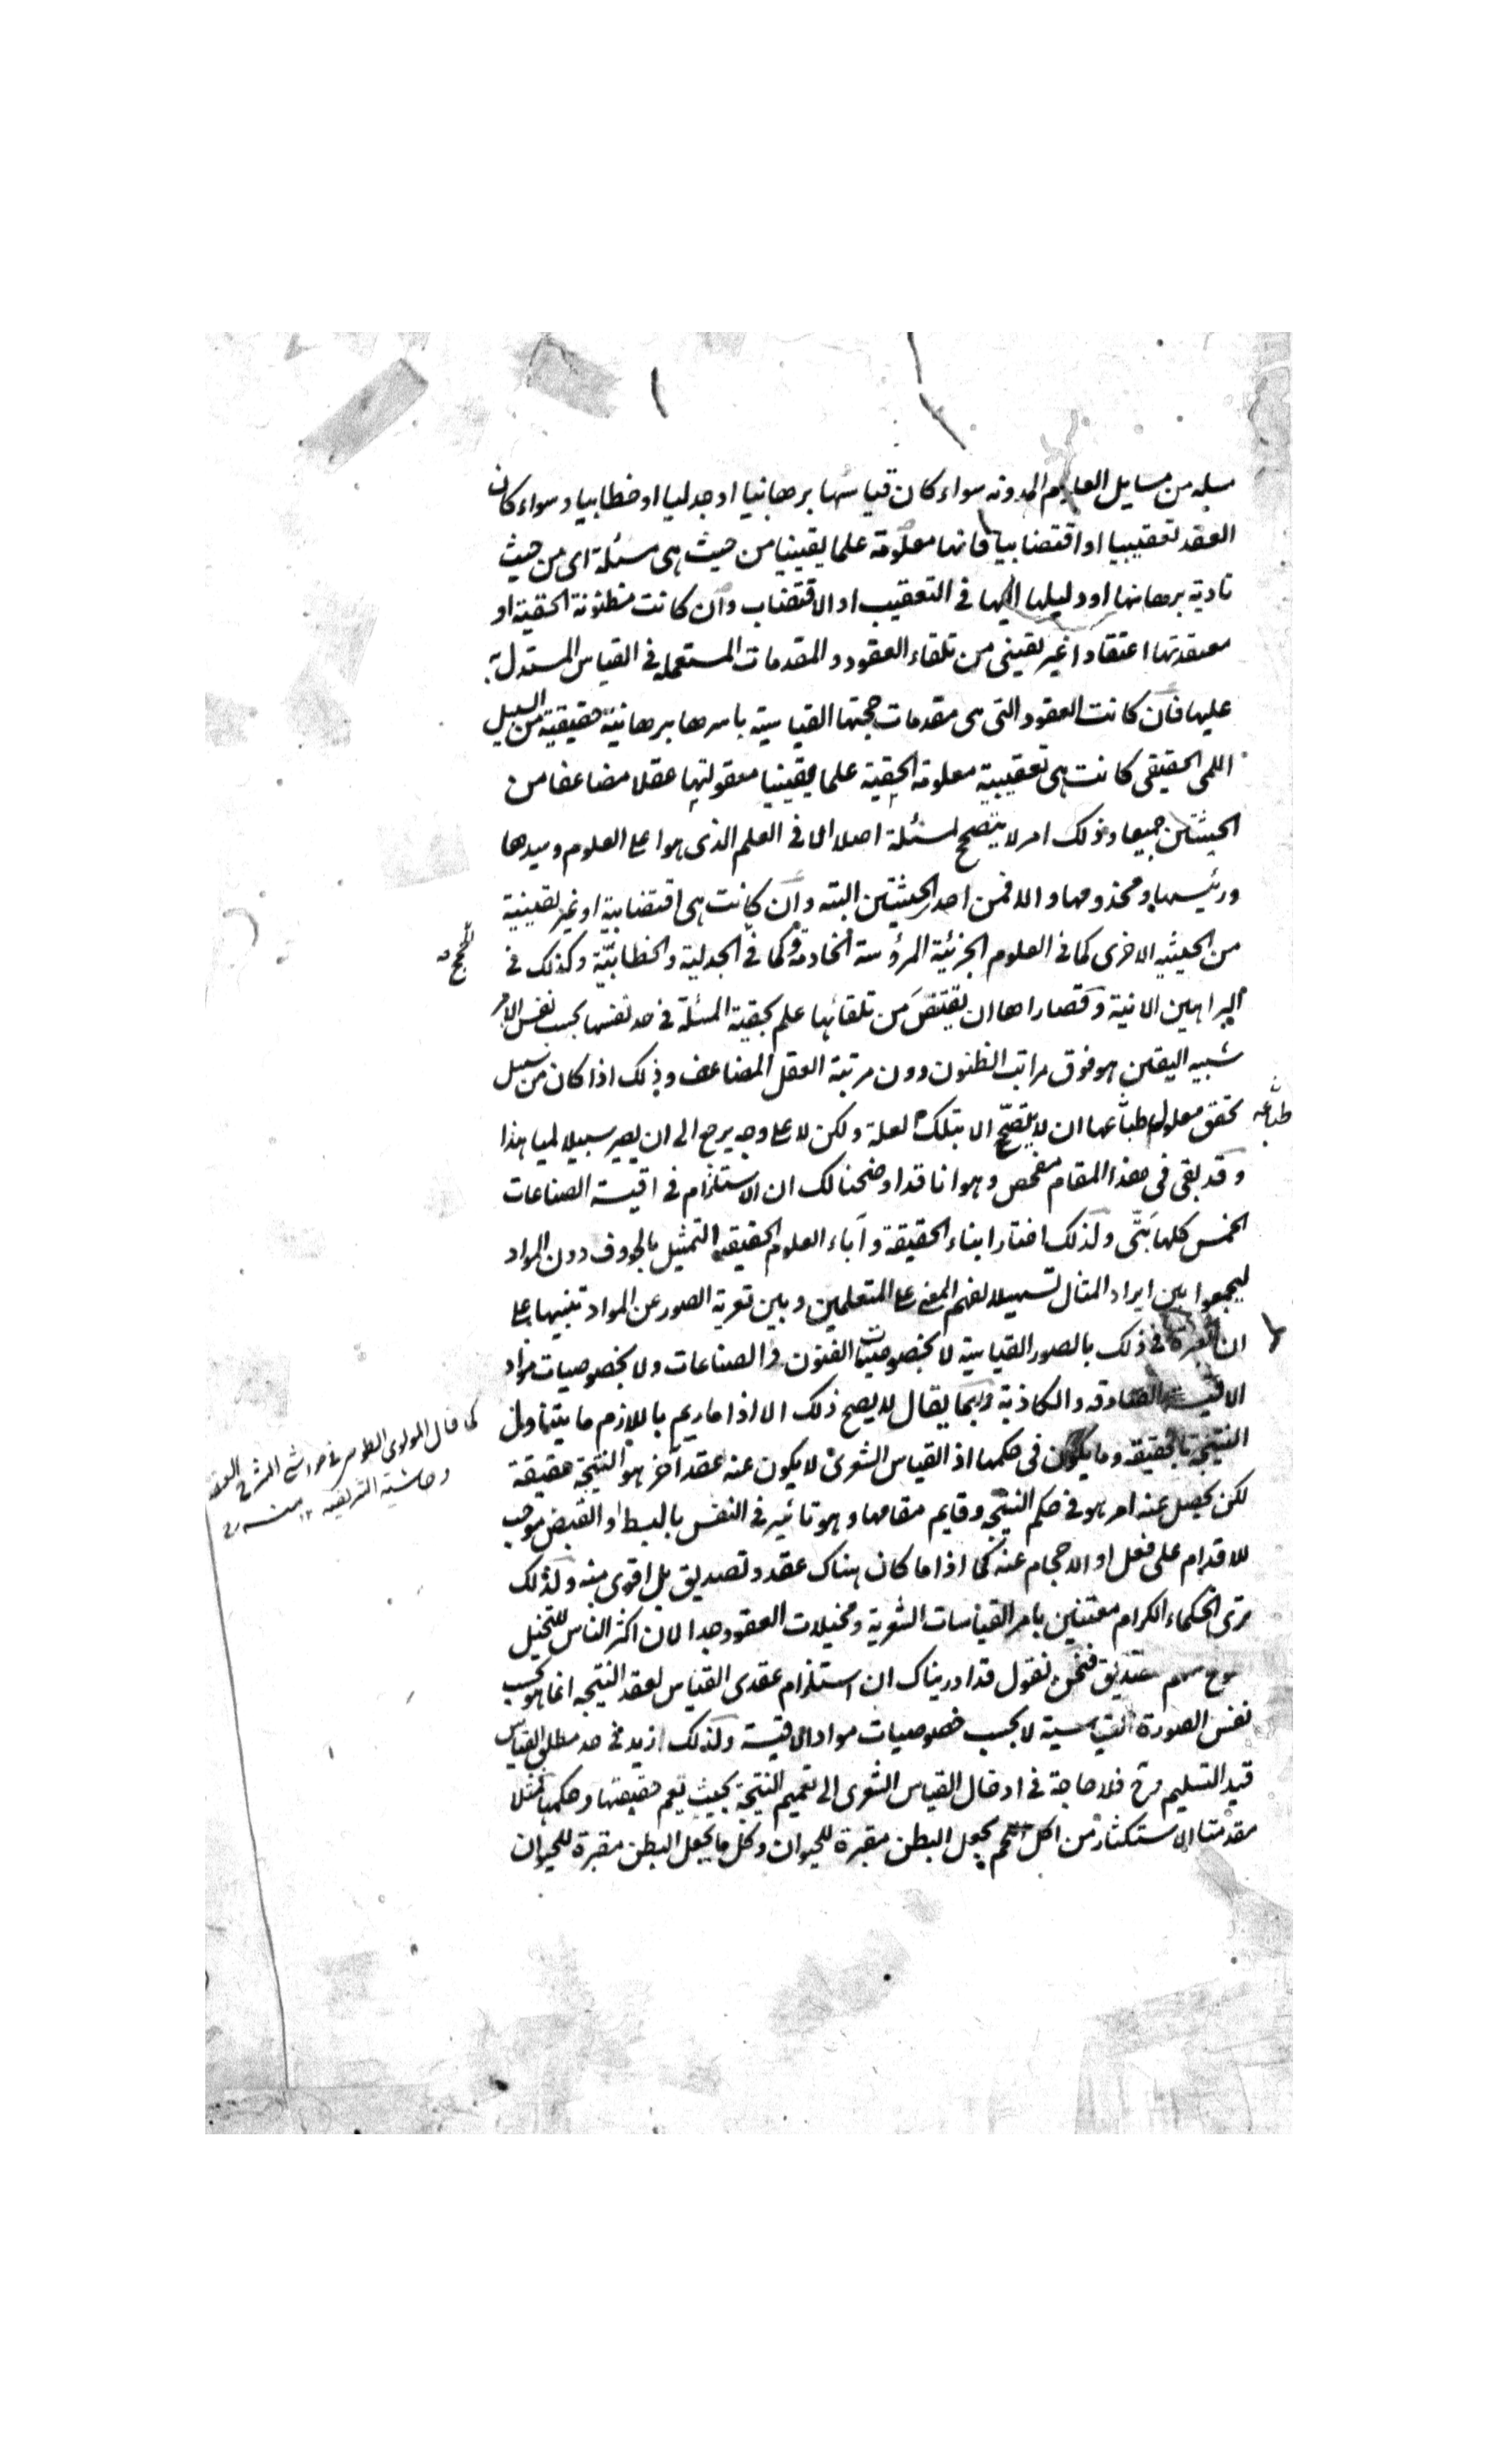 مسله من مسايل العلوم المدونه سواء كان قياسها برهانيا او جدليا او خطابيا وسواء كان
العقد تعقيبيا او اقتضابيا فانها معلومة علما يقينيا من حيث هى مسئلة اى من حيث
تادية برهانها او دليلها اليها فى التعقيب او الاقتضاب وان كانت مظنونة الحقية او
معتقدتها اعتقادا غير يقينى من تلقاء العقود والمقدمات المستعمله فى القياس المستدل به
عليها فان كانت العقود التى هى مقدمات حجتها القياسية باسرها برهانية حقيقية من السبيل
اللمى الحقيقى كانت هى تعقيبية معلومة الحقية علما يقينيا معقولتها عقلا مضاعفا من
الحيثتين جميعا وذلك امر لا يتصحح لمسئلة اصلا الا فى العلم الذى هو اعلى العلوم وسيدها
ورئيسها ومخدومها والا فمن احد الحيثتين البته وان كانت هى اقتضابية او غير يقينية
من الحيثيه الاخرى كما فى العلوم الجزئية المرؤسة الخادمة وكما فى الجدلية والخطابيّة وكذلك فى
الحجج
البراهين الانية وقصاراها ان يقتنص من تلقائها علم بحقية المسئلة فى حد نفسها بحسب نفس الامر
شبيه اليقين هو فوق مراتب الظنون ودون مرتبة العقل المضاعف وذلك اذا كان من سبيل
تحقق معلول طباعها ان لا يتصحّح الا بتلك العلة ولكن لا على وجه يرجع الى ان يصير سبيلا لميا هذا
طباعه
وقد بقى فى هذا المقام مفحص وهو انا قد اوضحنا لك ان الاستلزام فى اقيسة الصناعات
الخمس كلها بَتّى ولذلك اختار ابناء الحقيقة وآباء العلوم الحقيقيه التمثيل بالحروف دون المواد
ليجمعوا بين ايراد المثال تسهيلا لفهم المعنى على المتعلمين وبين تعرية الصور عن المواد تنبيها على
ان العبرة فى ذلك بالصور القياسية لا بخصوصيات الفنون والصناعات ولا بخصوصيات مواد
الاقيسة الصادقه والكاذبة وربما يقال لا يصح ذلك الا اذا ما ريم باللازم ما يتناول
النتيجة بالحقيقه وما يكون فى حكمها اذ القياس الشعرى لا يكون عنه عقد آخر هو النتيجة حقيقة
كما قال المولوى الطوسى فى حواشى
وحاشية الشريفيه ١٢ منه
لكن يحصل عنه امر هو فى حكم النتيجه وقايم مقامها وهو تاثير فى النفس بالبسط او القبض موجب
للاقدام على فعل او الاحجام عنه كما اذا ما كان هناك عقد وتصديق بل اقوى منه ولذلك
ترى الحكماء الكرام معتنين بامر القياسات الشعرية ومخيلات العقود جدا لان اكثر الناس للتخيل
اطوع منهم للتصديق فنحن نقول قد ادريناك ان استلزام عقدى القياس لعقد النتيجه انما هو بحسب
نفس الصورة القياسية لا بحسب خصوصيات مواد الاقيسة ولذلك ازيد فى حد مطلق القياس
قيد التسليم فلا حاجة فى ادخال القياس الشعرى الى تعميم النتيجة بحيث تعم حقيقتها وحكمها فمثلا
مقدمتا الاستكثار من اكل اللحم يجعل البطن مقبرة للحيوان وكل ما يجعل البطن مقبرة للحيوان